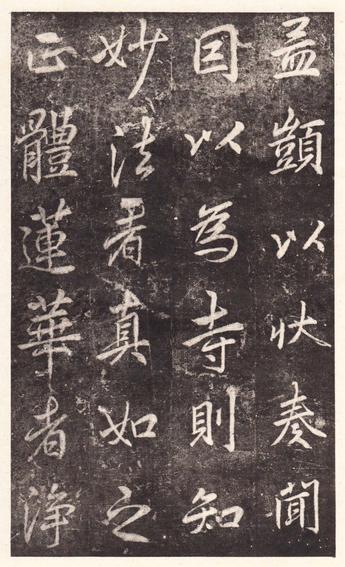 孟顗以狀奏聞
因以為寺則知
妙法者真如之
正體蓮華者淨